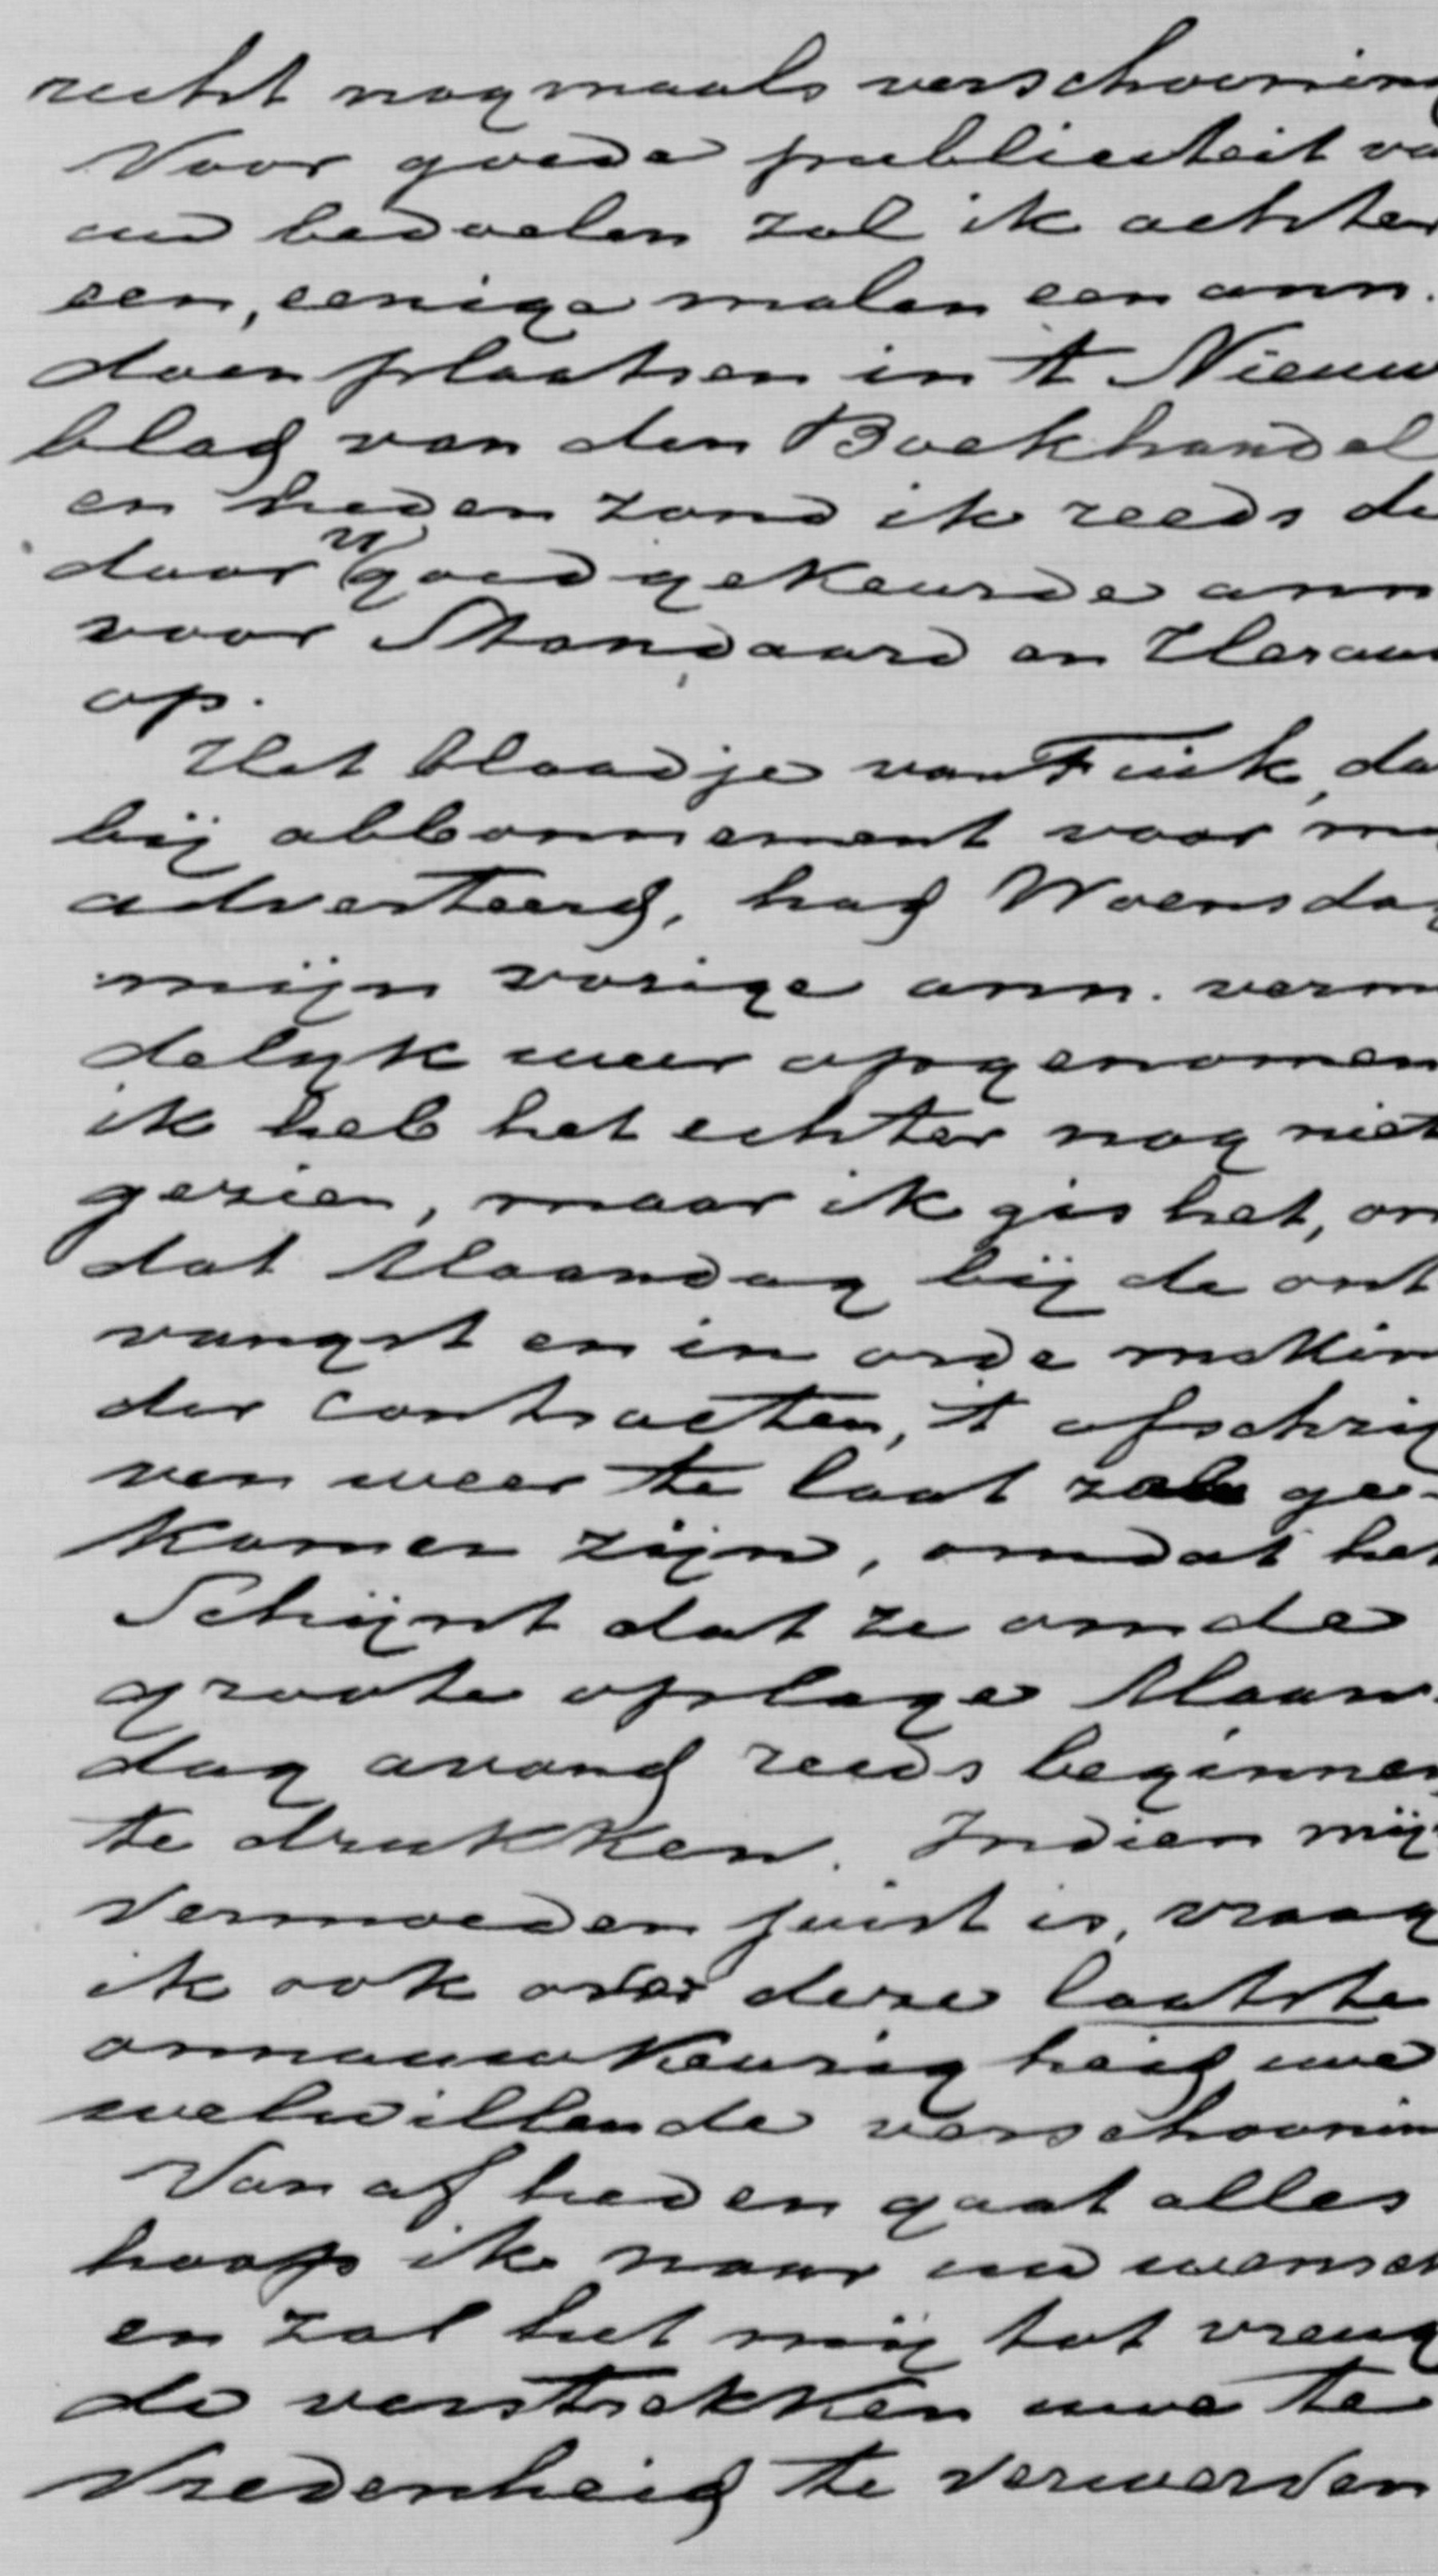 recht nogmaals verschooning
Voor goede publiciteit va
uw bedoelen zal ik achter
een, eenige malen een ann.
doen plaatsen in 't Nieuw
blad van den Boekhandel
en heden zond ik reeds de
door u goedgekeurde ann
voor Standaard en Herau
op.
Het blaadje van Fuik, da
bij abbonnement voor m
adverteerd, had Woensdag
mijn vorige ann. verm
delijk weer opgenomen
ik heb het echter nog niet
gezien, maar ik gis het, om
dat Maandag bij de ont
vangst en in orde making
der contracten, 't afschrij
ven weer te laat zal ge-
komen zijn, omdat het
Schijnt dat ze om de
groote oplage Maan-
dag avond reeds beginnen
te drukken. Indien mij
vermoeden juist is, vraag
ik ook over deze laatste
onnauwkeurigheid uwe
welwillende verschoonin
Van af heden gaat alles
hoop ik naar uw wensch
en zal het mij tot vreug
de verstrekken uwe te
vredenheid te verwerven